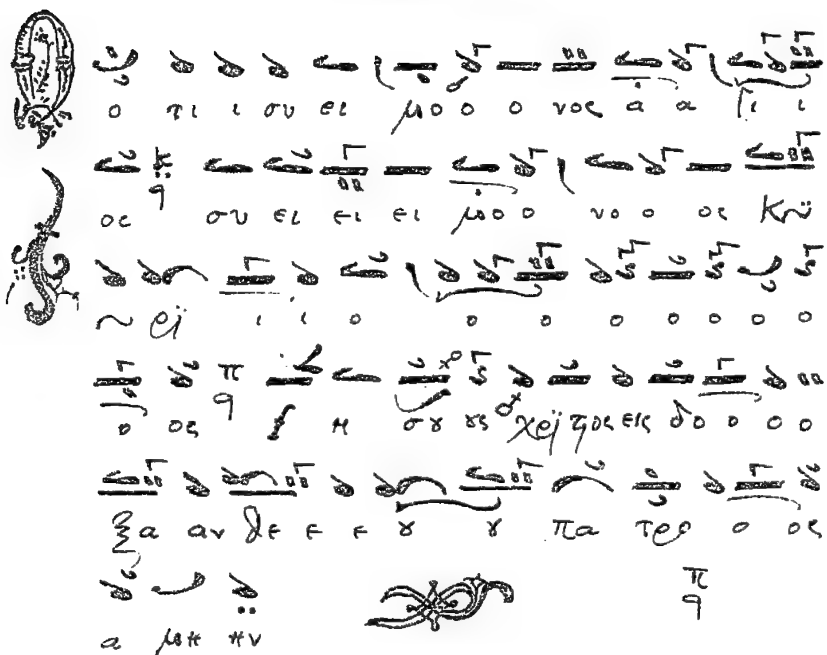 ο τι ι συ ει μο ο ο νος α α γι ι
ος συ ει ει ει μο ο νο ο ος Κυ
υ ρι ι ι ο ο ο ο ο ο ο ο
ο ος Ι η σȣ ȣς χρι τος εις δο ο ο ο
ξα αν θε ε ε ȣ ȣ πα τρο ο ος
α μη ην